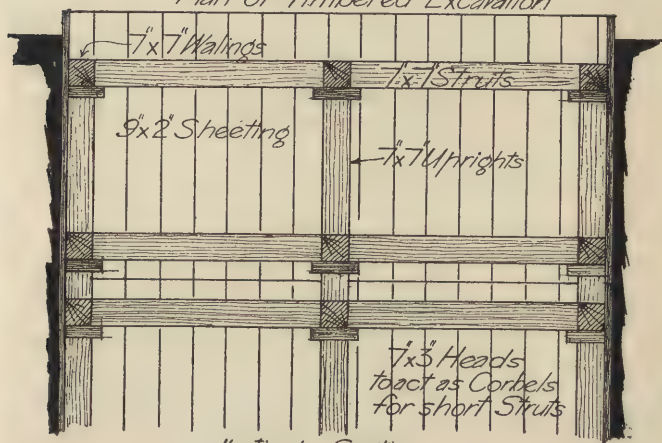 Plan of Timbered Excavation
7"x7" Walings
7"x7" Struts
9"x2" Sheeting
7"x7" Uprights
7"x3" Heads
to act as Corbels
for short Struts